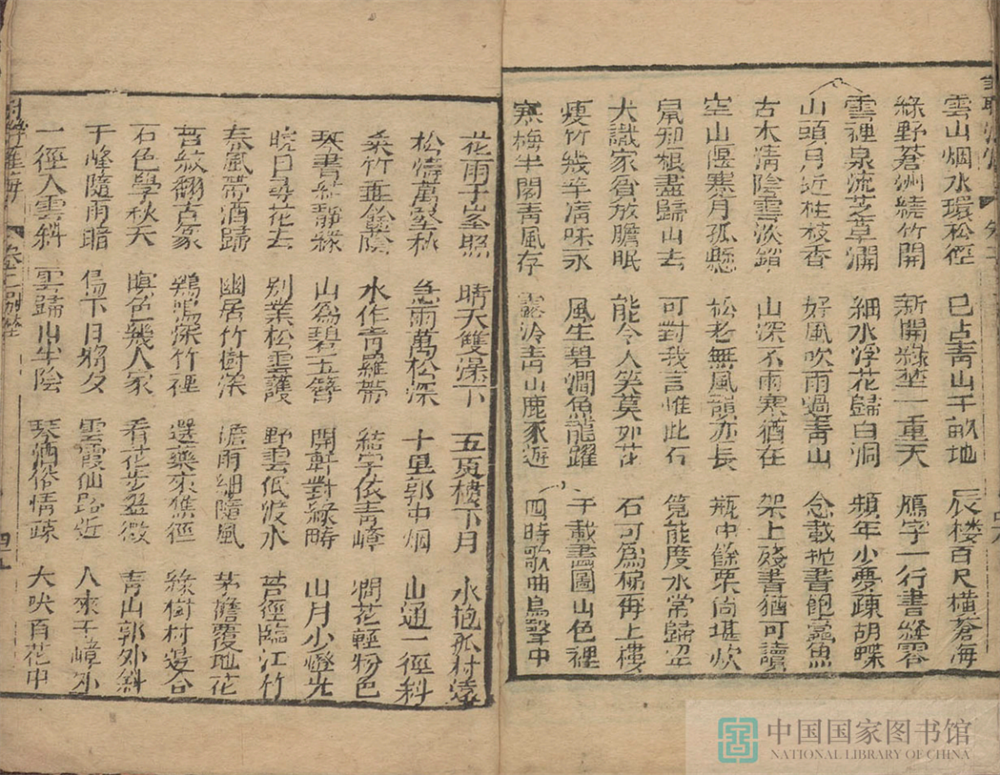 雲山烟水環松徑 已占靑山千畝地 辰楼百尺横蒼海
綠野蒼洲繞竹開 新開綠埜一重天 鴈字一行書絳霄
雲裡泉流芝草潤 細水浮花歸白洞 頻年少夢疎胡蝶
山頭月近桂枝香 好風吹雨過靑山 念載抛書飽蠹魚
古木清陰雲淡鎖 山深不雨寒猶在 架上殘書猶可讀
空山偃寒月孤懸 松老無風韻亦長 瓶中餘粟尚堪炊
知根盡歸山去 可對我言惟此石 筧能度水常歸
犬識家貧放膽眠 能令人笑莫如花 石可為梯再上樓
瘦竹幾竿清味永 風生碧澗魚龍躍 千載畫圖山色裡
寒梅半閣靑風存 露冷靑山鹿豕遊 四時歌曲鳥聲中
花雨千崖照 晴天雙瀑下 五頁樓下月 水抱孤村遠
松濤萬壑秋 急雨萬松深 十里郭中烟 山通一徑斜
柔竹垂餘蔭 水作青羅帶 結宇依青嶂 澗花輕物色
琴書紛靜緣 山為碧玉簪 開軒對綠疇 山月少燈光
晚日尋花去 別業松雲護 野雲低渡水 苔徑臨江竹
春風帶酒歸 幽居竹樹深 澹雨細隨風 茅簷覆地花
苔紋翻古篆 鷄鳴深竹裡 選藥來樵徑 綠樹村邊合
石色學秋天 暝色幾人家 看花步壑微 青山郭外斜
千峰隨雨暗 下月將夕 雲霞仙路近 人來千嶂外
一徑入雲斜 雲歸山半陰 琴酒俗情疎 犬吠百花中
卷二別墅 四九
中国国家图书馆
NATIONAL LIBRARY OF CHINA